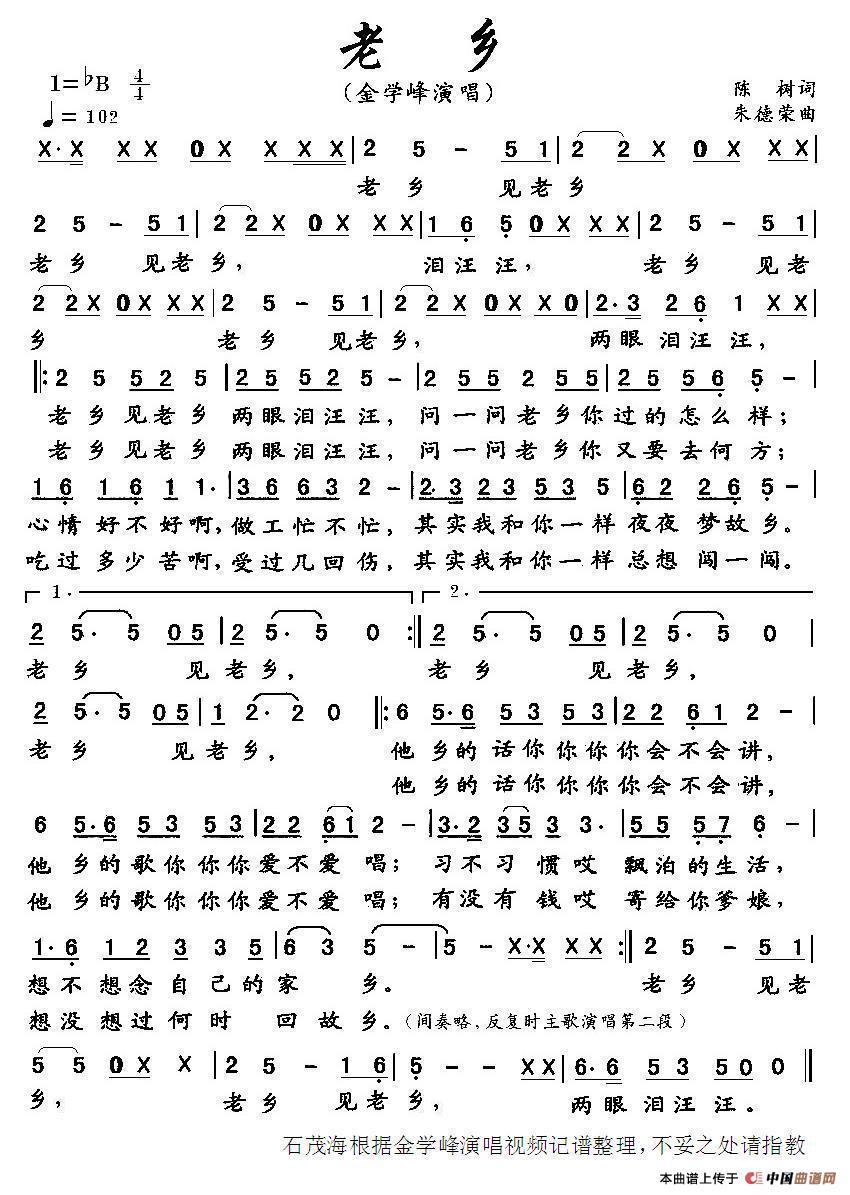 老 乡
1=♭B 4/4
（金学峰演唱）
陈 树词
♩=102
朱德荣曲
X·X X X 0 X X X X | 2 5 - 5 1 | 2 2 X 0 X X X |
老 乡 见老乡
2 5 - 5 1 | 2 2 X 0 X X X | 1 6 5 0 X X X | 2 5 - 5 1 |
老 乡 见 老 乡， 泪 汪 汪， 老 乡 见 老
2 2 X 0 X X X | 2 5 - 5 1 | 2 2 X 0 X X 0 | 2·3 2 6 1 X X |
乡 老 乡 见 老 乡， 两眼 泪 汪 汪，
‖: 2 5 5 2 5 | 2 5 5 2 5 - | 2 5 5 2 5 5 | 2 2 5 5 6 5 - |
老 乡 见老 乡 两眼泪汪汪，问一问老乡你过的怎么 样；
老 乡 见老 乡 两眼泪汪汪，问一问老乡你又要去何 方；
1 6 1 6 1 1· | 3 6 6 3 2 - | 2·3 2 3 5 3 5 | 6 2 2 6 5 - |
心情 好不好啊，做工忙不忙，其实我和你一样 夜夜 梦故乡。
吃过 多少 苦啊，受过几回伤，其实我和你一样 总想 闯一闯。
1. 2.
2 5· 5 0 5 | 2 5· 5 0 :‖ 2 5· 5 0 5 | 2 5· 5 0 |
老 乡 见老乡， 老 乡 见老乡，
2 5· 5 0 5 | 1 2· 2 0 ‖: 6 5·6 5 3 5 3 | 2 2 6 1 2 - |
老 乡 见 老 乡， 他 乡的 话你 你你你会不会讲，
他 乡的 话你 你你你会不会讲，
6 5·6 5 3 5 3 | 2 2 6 1 2 - | 3·2 3 5 3 3· | 5 5 5 7 6 - |
他 乡的歌你 你你爱不爱 唱；习不习 惯哎 飘泊的生活，
他 乡的歌你 你你爱不爱 唱；有没有 钱哎 寄给你爹娘，
1·6 1 2 3 3 5 | 6 3 5 - | 5 - X·X X X :‖ 2 5 - 5 1 |
想不 想念 自己的家 乡。 老 乡 见老
想没 想过何时 回故乡。（间奏略，反复时主歌演唱第二段）
5 5 0 X X X | 2 5 - 1 6 | 5 - - X X | 6·6 5 3 5 5 0 ‖
乡， 老 乡 见老 乡， 两眼 泪汪 汪。
石茂海根据金学峰演唱视频记谱整理，不妥之处请指教
本曲谱上传于 中国曲谱网